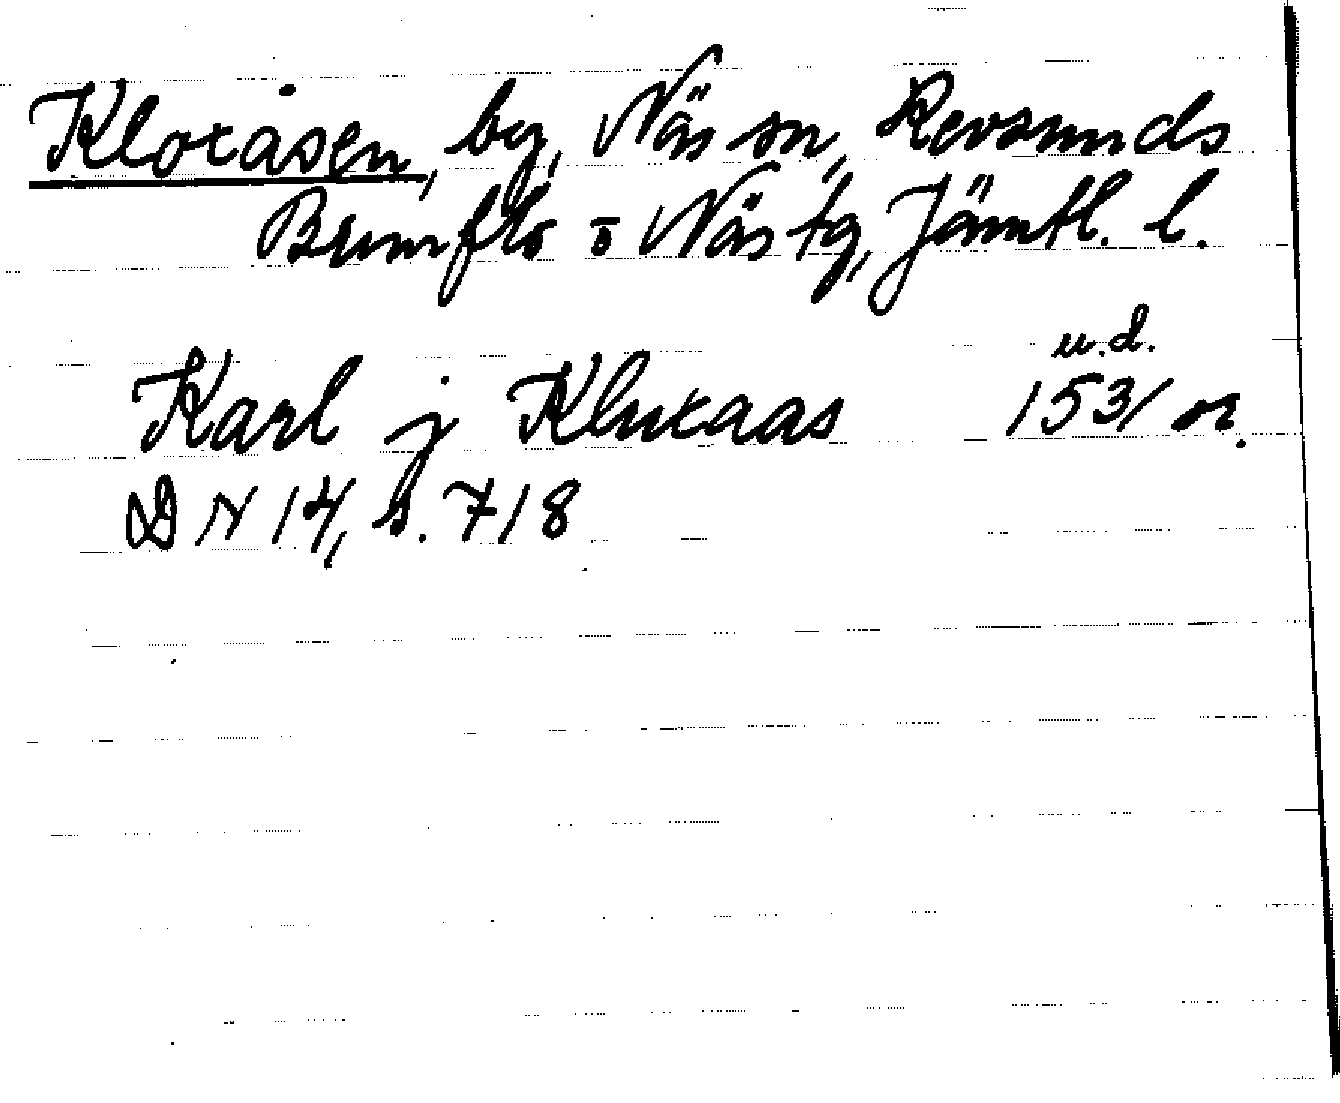 Kloxåsen, by, Näs sn, Revsunds
Brunflo o Näs tg, Jämtl. l.
u.d.
Karl j Kluxaas 1531 or.
DN 14, s. 718